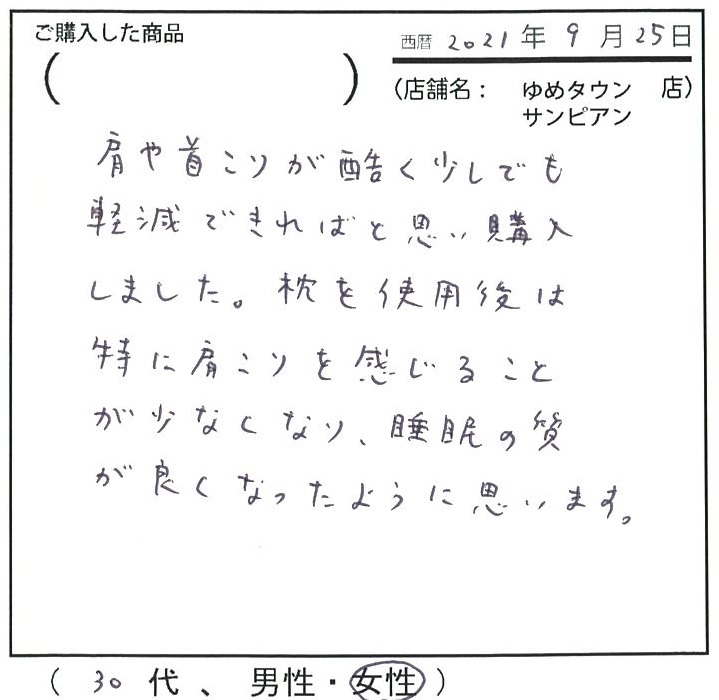 ご購入した商品
( )
西暦 2021年 9月25日
(店舗名： ゆめタウン 店)
サンピアン
肩や首こりが酷く少しでも
軽減できればと思い購入
しました。枕を使用後は
特に肩こりを感じること
が少なくなり、睡眠の質
が良くなったように思います。
( 30代、男性・女性 )